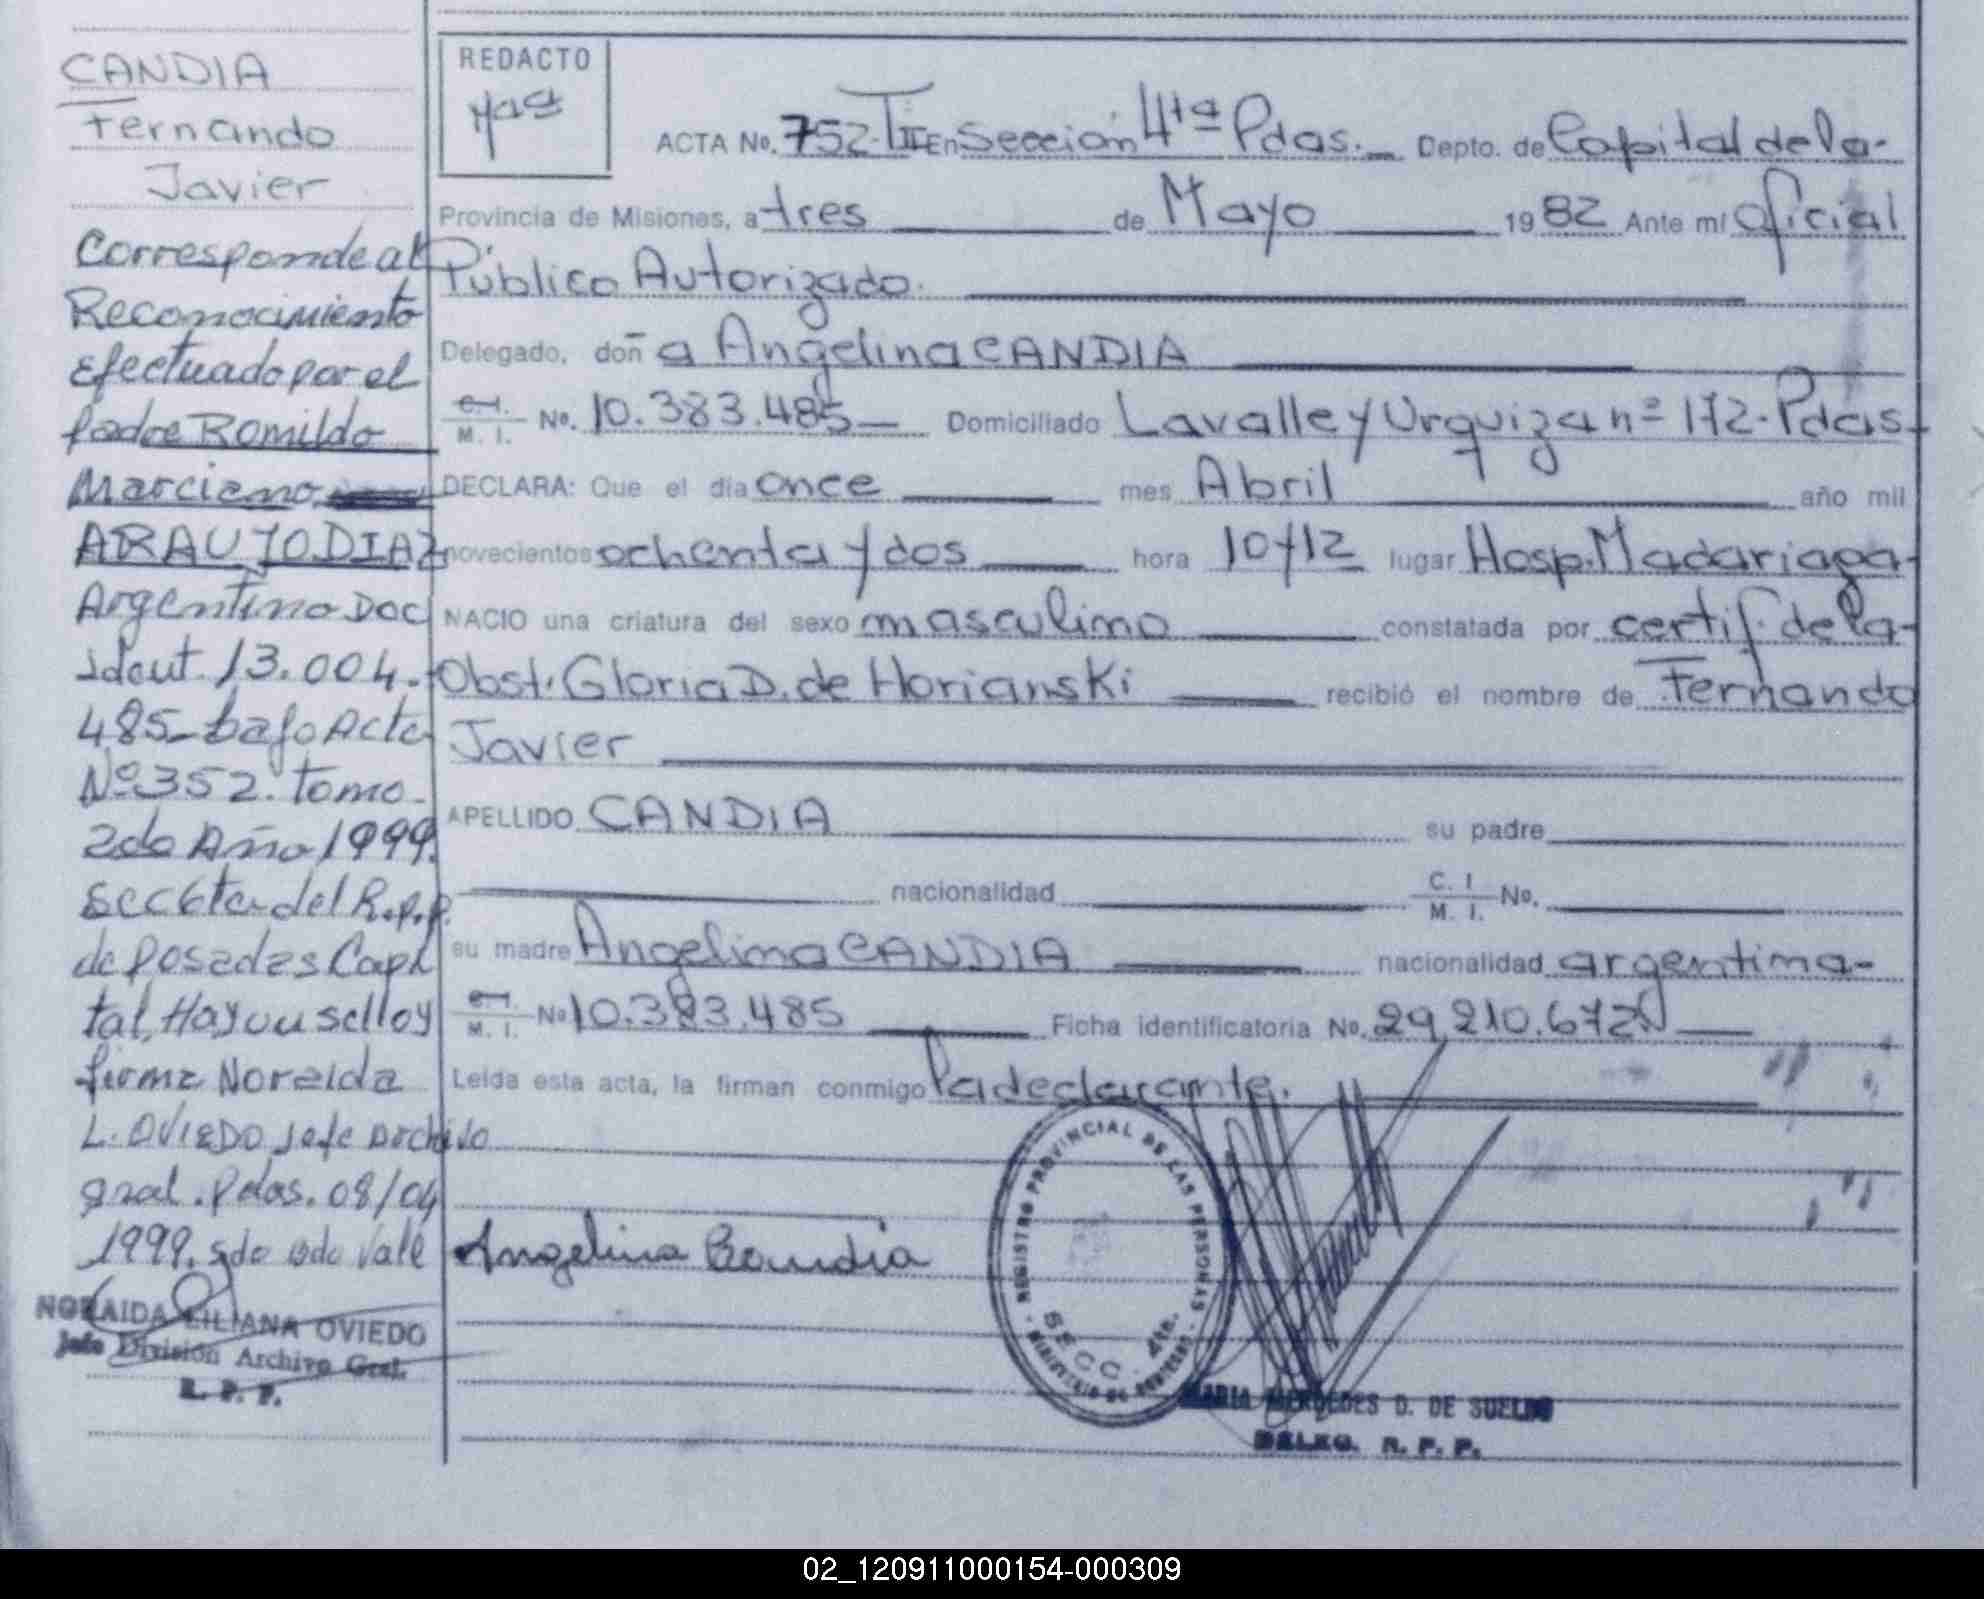 CANDIA
Fernando
Javier
Corresponde al
Reconocimiento
Efectuado por el
padre Romildo
Marciano
ARAUJO DIAZ
Argentino Doc
Ident. 13.004.
485_ bajo Acta
Nº 352. tomo
2do Año 1999.
Secc 6ta del R.p.p.
de Posadas Capi
tal, Hay un sello y
firma Noraida
L. OVIEDO Jefe Archivo
gral. Pdas. 08/04
1999. Sdo Bdo Vale
NORAIDA LILIANA OVIEDO
Jefe División Archivo Gral.
R. P. P.
REDACTO
ACTA No. 752-TII En Sección 4ta Pdas. Depto. de Capital de la-
Provincia de Misiones, a tres de Mayo 1982 Ante mí Oficial
Público Autorizado.
Delegado, doña Angelina CANDIA
C.I. M. I. No. 10.383.485 Domiciliado Lavalle y Urquiza nº 172-Pdas.
DECLARA: Que el día once mes Abril año mil
novecientos ochenta y dos hora 10 y 12 lugar Hosp. Madariaga-
NACIO una criatura del sexo masculino constatada por certif. de la-
Obst. Gloria D. de Horianski recibió el nombre de Fernando
Javier
APELLIDO CANDIA su padre
nacionalidad C. I M. I. No.
su madre Angelina CANDIA nacionalidad argentina-
C.I. M. I. No 10.383.485 Ficha identificatoria No. 29.210.672N
Leída esta acta, la firman conmigo la declarante.
Angelina Candia
REGISTRO PROVINCIAL DE LAS PERSONAS
MINISTERIO DE GOBIERNO
SECC. 4ta.
MARIA MERCEDES D. DE SUELDO
DELEG. R. P. P.
02_120911000154-000309